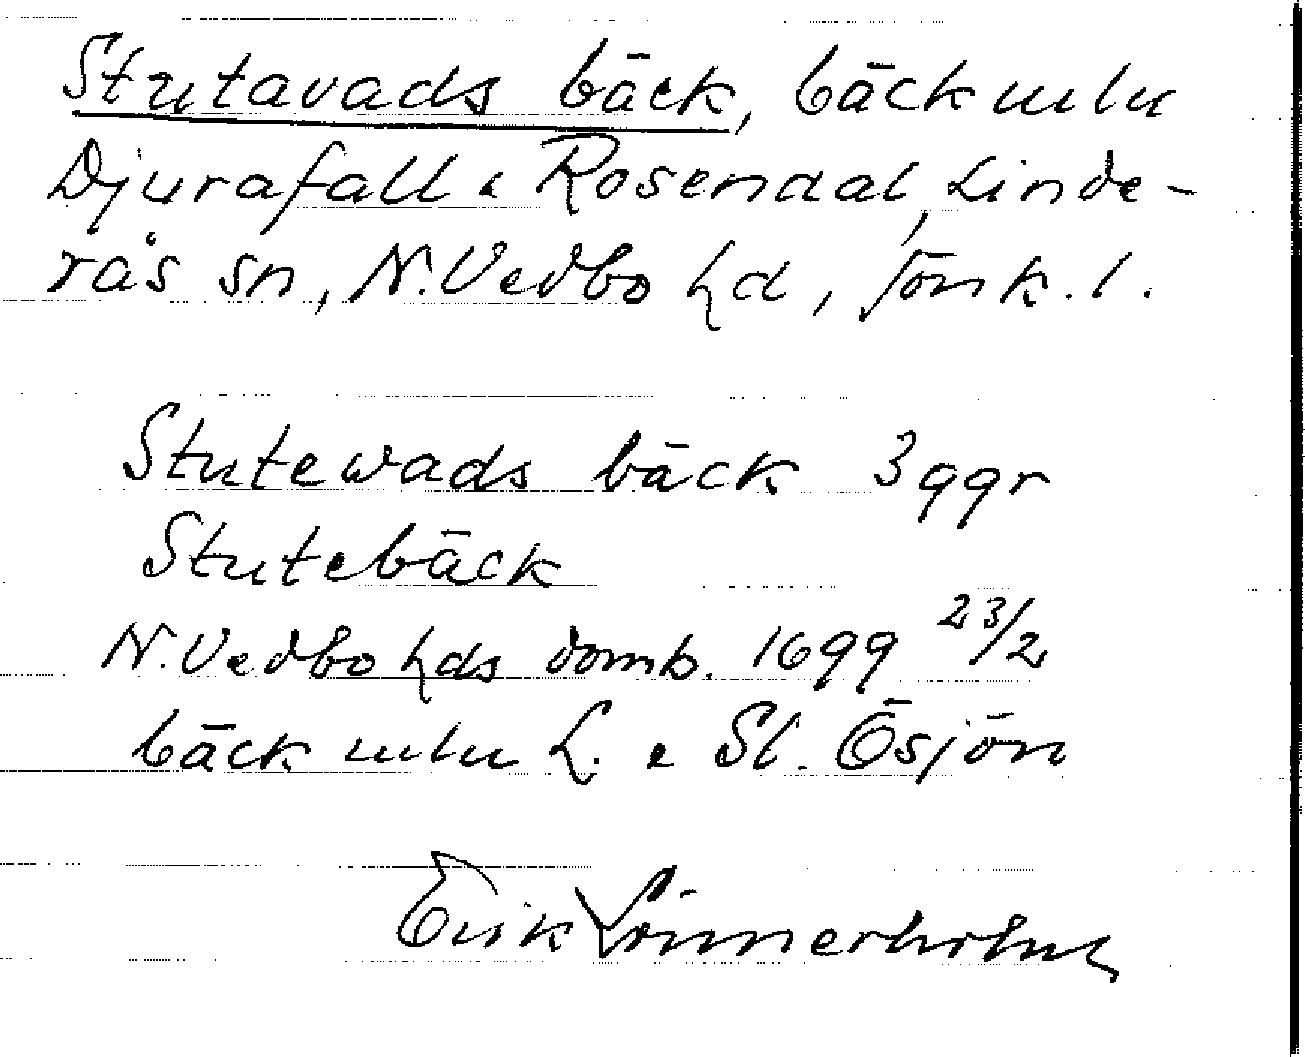 Stutavads bäck, bäck mln
Djurafall o Rosendal, Linde-
rås sn, N. Vedbo hd, Jönk. l.
Stutewads bäck 3 ggr
Stutebäck
N. Vedbo hds domb. 1699 23/2
bäck mln L. o St. Ösjön
Erik Lönnerholm